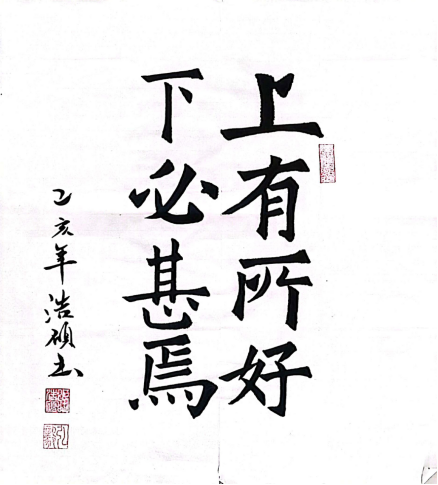 上有所好
下必甚焉
乙亥年浩硕书